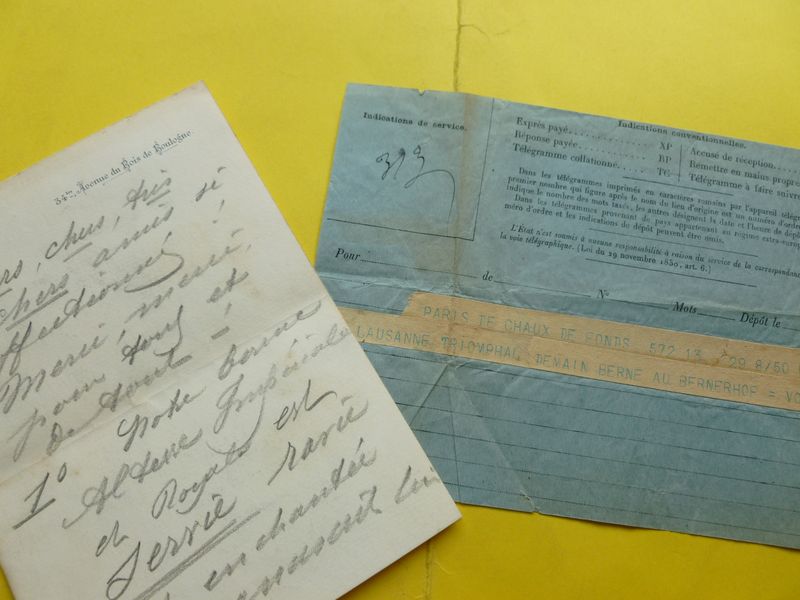 34ter Avenue du Bois de Boulogne.
chers, très
chers amis si
affectionné !
Merci, merci,
pour tout et
de tout !
1o Notre bonne
Altesse Impériale
et Royale est
servie ravie
enchantée
lui
Indications de service.
313
Indications conventionnelles.
Exprès payé XP
Réponse payée RP
Télégramme collationné TC
Accuse de réception
Remettre en mains propres
Télégramme à faire suivre
Dans les télégrammes imprimés en caractères romains par l'appareil télégr
premier nombre qui figure après le nom du lieu d'origine est un numéro d'ordre
indique le nombre des mots taxés, les autres désignent la date et l'heure de dépôt
Dans les télégrammes provenant de pays appartenant au régime extra-europ
méro d'ordre et les indications de dépôt peuvent être omis.
L'État n'est soumis à aucune responsabilité à raison du service de la correspondance
la voie télégraphique. (Loi du 29 novembre 1850, art. 6.)
Pour
de No Mots Dépôt le
PARIS DE CHAUX DE FONDS 572 13 29 8/50
LAUSANNE TRIOMPHAL DEMAIN BERNE AU BERNERHOF = VO